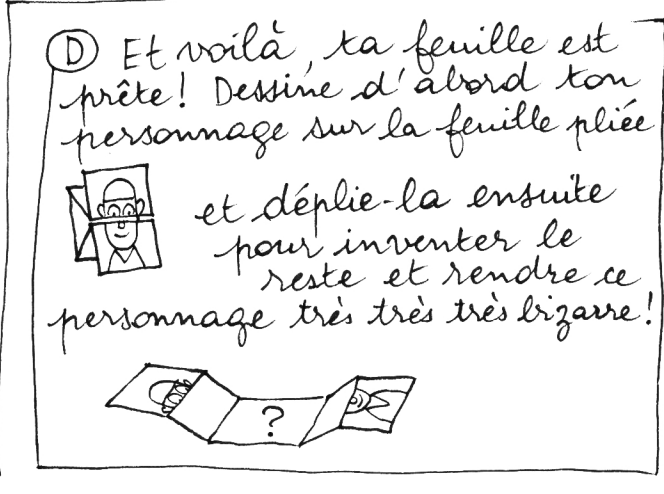 D Et voilà, ta feuille est
prête! Dessine d'abord ton
personnage sur la feuille pliée
et déplie-la ensuite
pour inventer le
reste et rendre ce
personnage très très très bizarre!
?